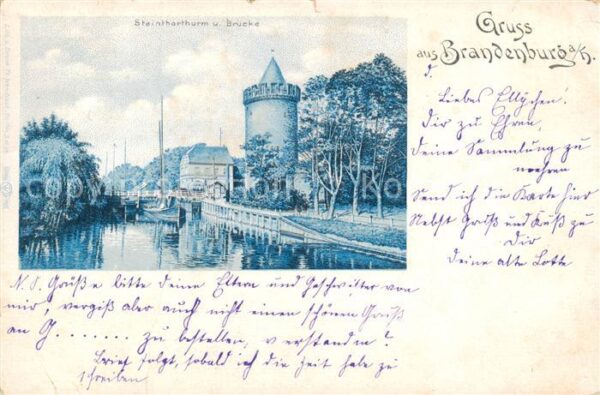 Steinthorthurm u. Brücke
Gruss
aus Brandenburg a/H.
Liebes Ellychen!
Dir zu Ehren,
deine Sammlung zu
mehren
Send ich die Karte hier
Nebst Gruß und Kuß zu
Dir
Deine alte Lotte
N. S. Grüße bitte deine Eltern und Geschwister von
mir, vergiß aber auch nicht einen schönen Gruß
an G........ zu bestellen, verstandn?
Brief folgt, sobald ich die Zeit habe zu
schreiben